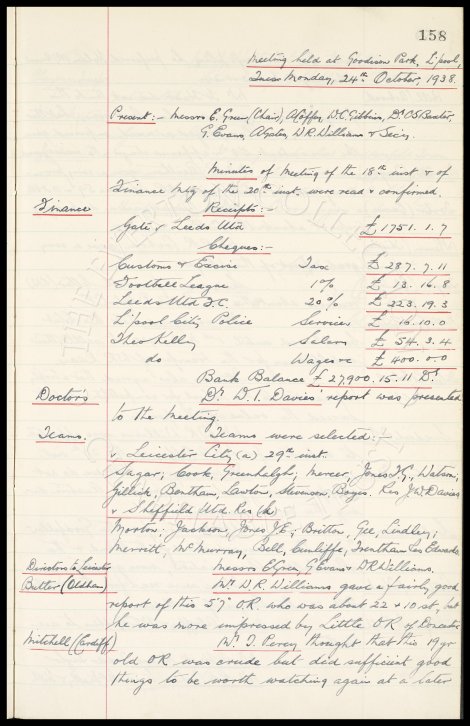 158
Meeting held at Goodison Park, L'pool,
Monday, 24th October, 1938.
Present:- Messrs E. Green (Chair), A. Coffey, W.C. Gibbins, Dr. C.S. Baxter,
G. Evans, A. Gates, W.R. Williams & Secy.
Minutes of Meeting of the 18th inst & of
Finance Mtg of the 20th inst. were read & confirmed.
Finance
Receipts:-
Gate v Leeds Utd £1751.1.7
Cheques:-
Customs & Excise Tax £287.7.11
Football League 1% £13.16.8
Leeds Utd F.C. 20% £223.19.3
L'pool City Police Services £16.10.0
Theo Kelly Salary £54.3.4
do Wages £400.0.0
Bank Balance £27,900.15.11 Dr
Doctor's
Dr. D.T. Davies' report was presented
to the Meeting.
Teams.
Teams were selected:-
v. Leicester City (a) 29th inst.
Sagar; Cook, Greenhalgh; Mercer, Jones T.G., Watson;
Gillick, Bentham, Lawton, Stevenson, Boyes. Res J.W. Davies
v Sheffield Utd. Res (h)
Morton; Jackson, Jones J.E., Britton, Gee, Lindley;
Merritt, McMurray, Bell, Cunliffe, Trentham Res Edwards.
Directors to Leicester
Messrs E. Green, G. Evans & W.R. Williams.
Butler (Oldham)
Mr. W.R. Williams gave a fairly good
report of this 5'7" O.R. who was about 22 & 10 st, but
he was more impressed by Little O.R. of Doncaster
Mitchell (Cardiff)
Mr. T. Percy thought that this 19 yr
old O.R. was crude but did sufficient good
things to be worth watching again at a later